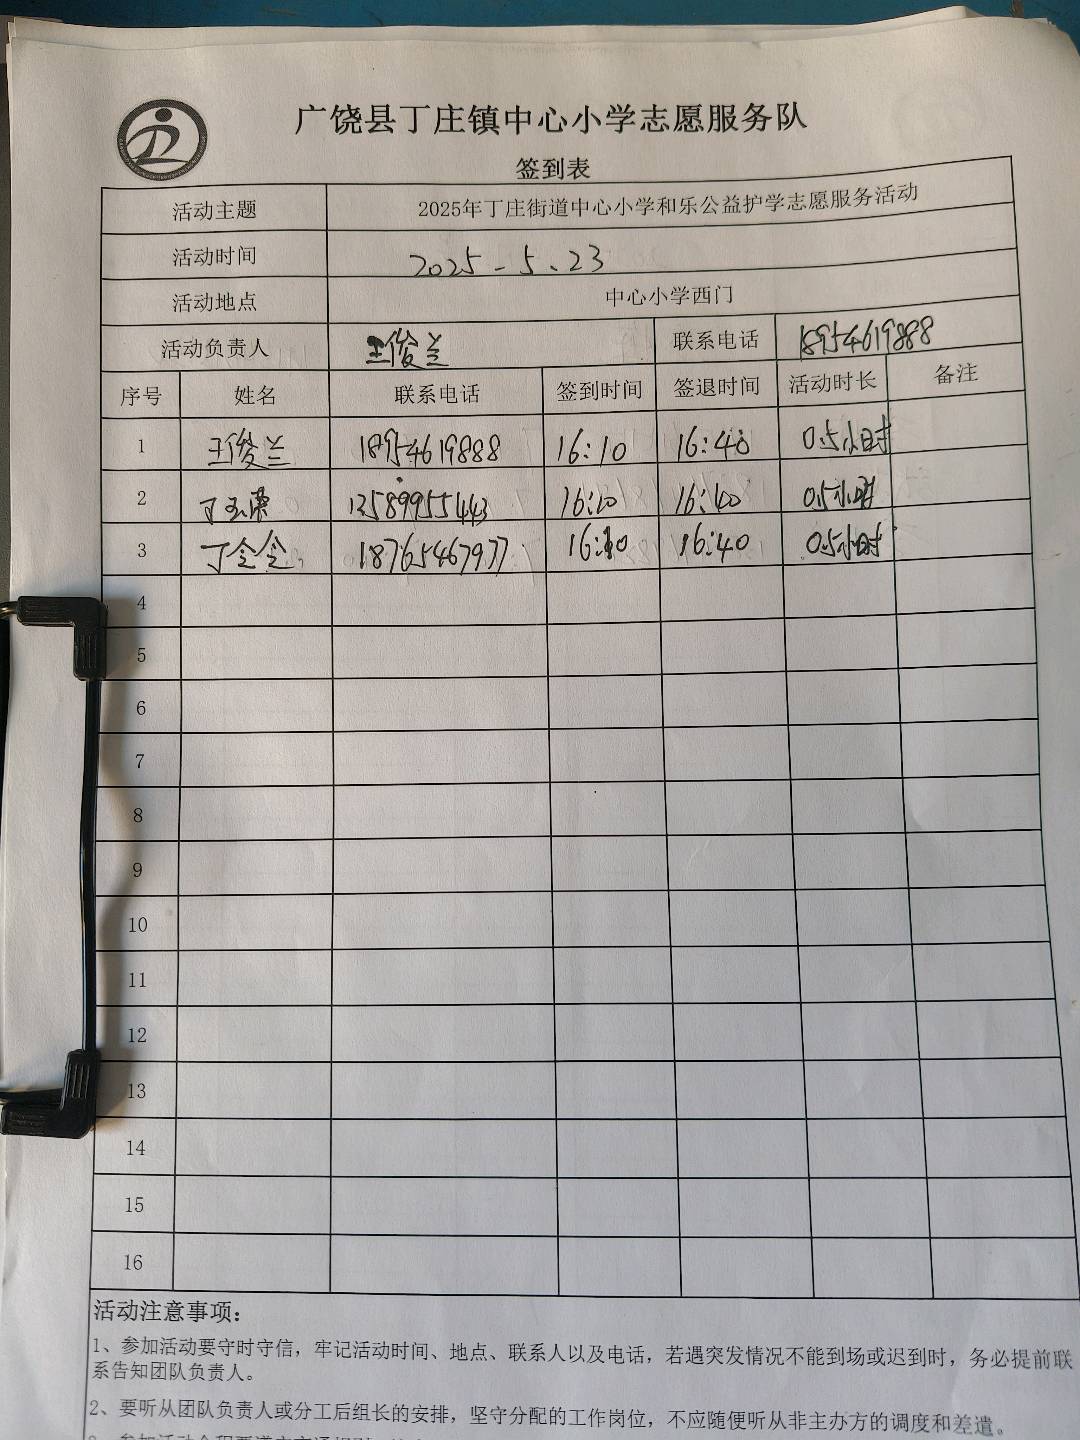 广饶县丁庄镇中心小学志愿服务队
签到表
活动主题 2025年丁庄街道中心小学和乐公益护学志愿服务活动
活动时间 2025-5.23
活动地点 中心小学西门
活动负责人 王俊兰 联系电话 18954619888
序号 姓名 联系电话 签到时间 签退时间 活动时长 备注
1 王俊兰 18954619888 16:10 16:40 0.5小时
2 13589955443 16:10 16:40 0.5小时
3 丁令令 18765467977 16:10 16:40 0.5小时
4
5
6
7
8
9
10
11
12
13
14
15
16
活动注意事项:
1、参加活动要守时守信，牢记活动时间、地点、联系人以及电话，若遇突发情况不能到场或迟到时，务必提前联
系告知团队负责人。
2、要听从团队负责人或分工后组长的安排，坚守分配的工作岗位，不应随便听从非主办方的调度和差遣。